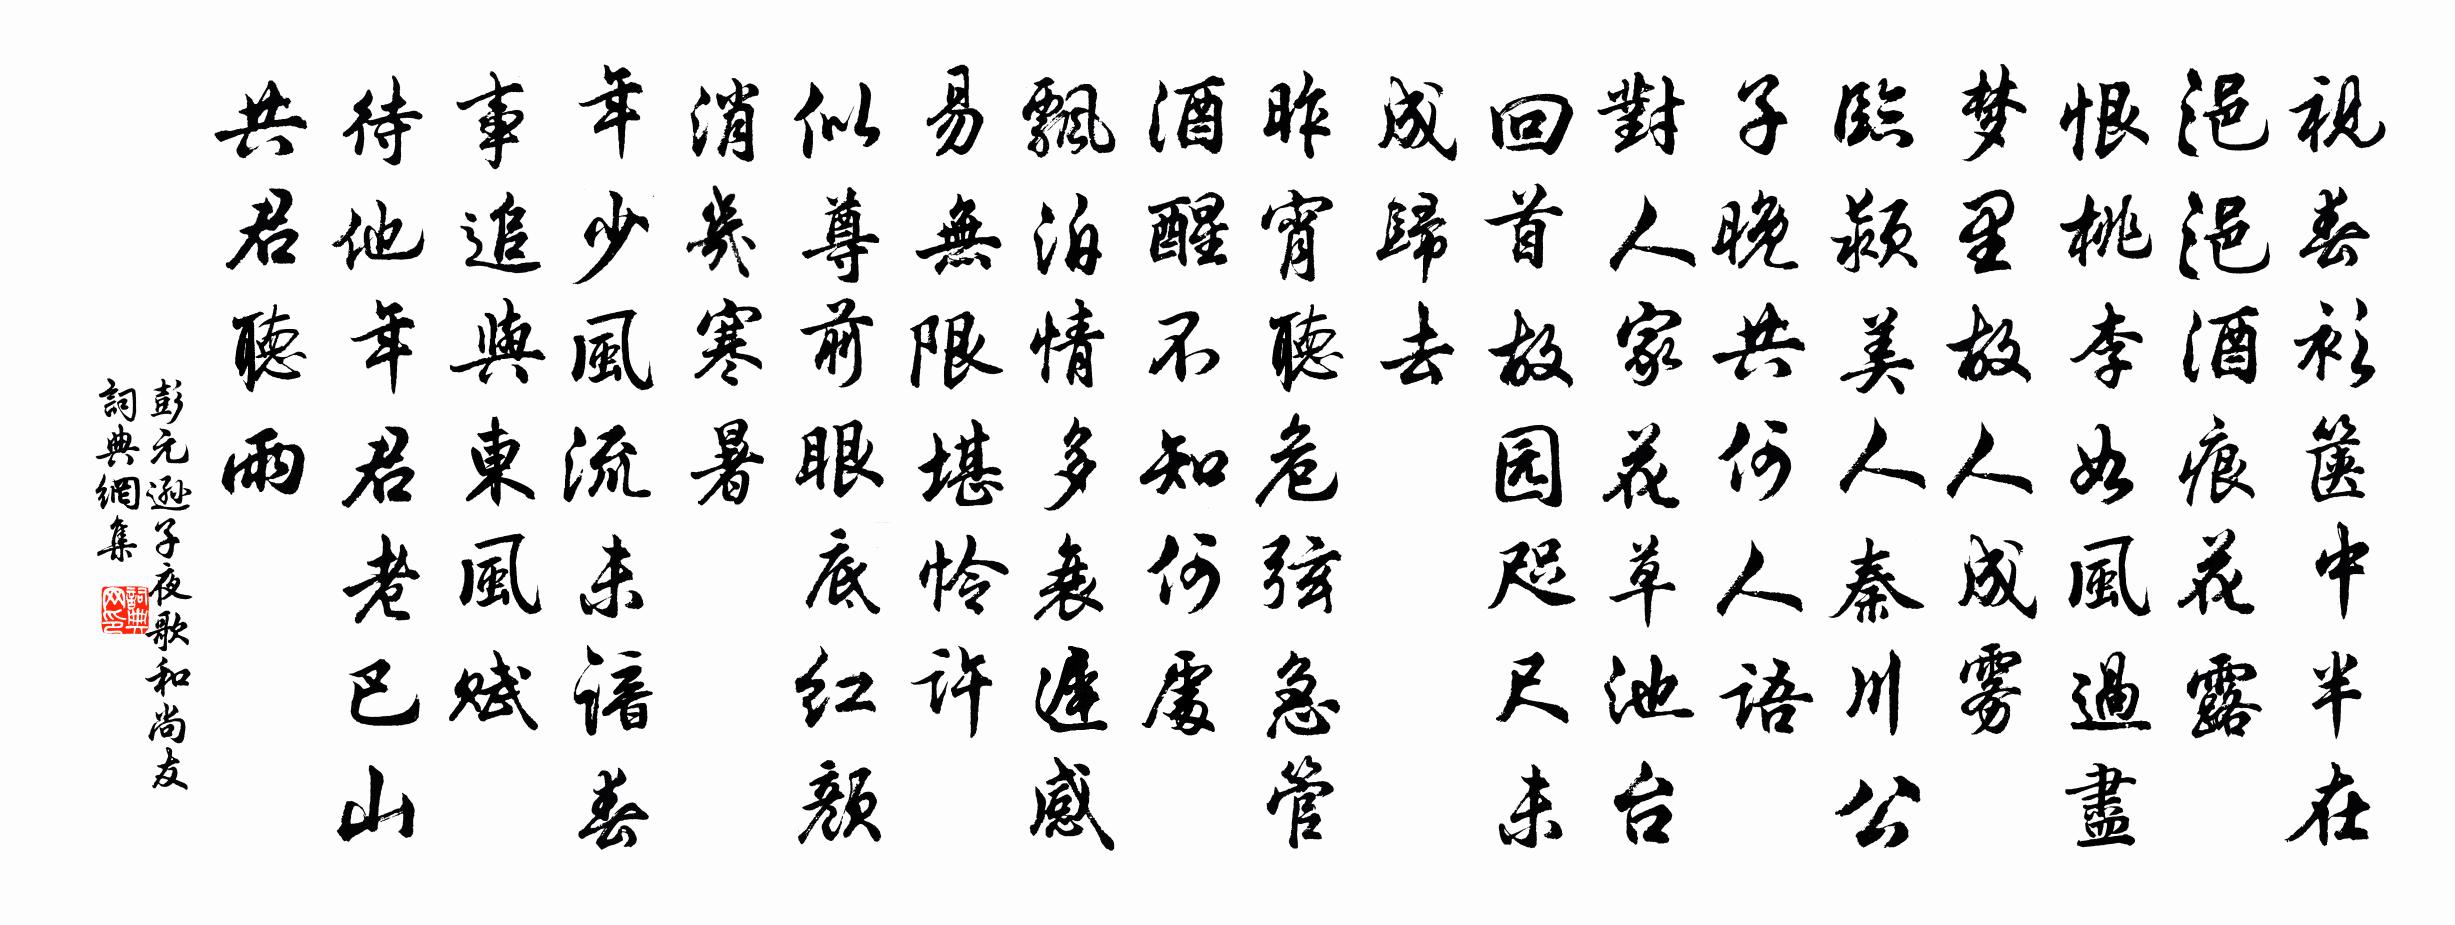 視春衫篋中半在
浥浥酒痕花露
恨桃李如風過盡
梦里故人成雾
臨潁美人秦川公
子晚共何人語
對人家花草池台
回首故园咫尺未
成歸去
昨宵聽危弦急管
酒醒不知何處
飄泊情多衰遲感
易無限堪怜許
似尊前眼底红顏
消幾寒暑
年少風流未諳春
事追與東風賦
待他年君老巴山
共君聽雨
彭元遜子夜歌和尚友
詞典網集
詞典网印